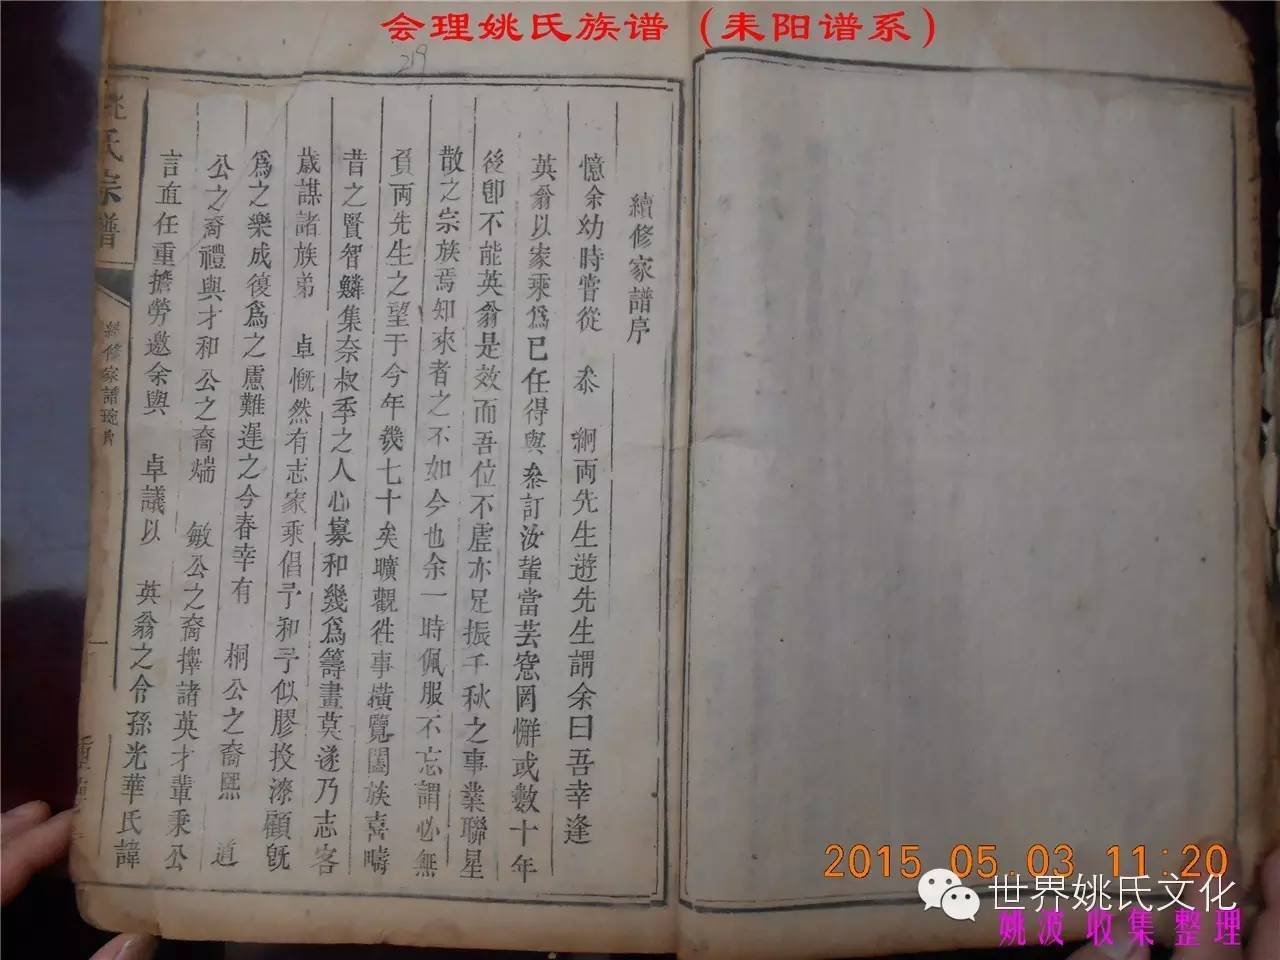 会理姚氏族谱（耒阳谱系）
219
續修家譜序
憶余幼時嘗從 泰 絅両先生遊先生謂余曰吾幸逢
英翁以家乘爲己任得與叅訂汝輩當芸窓罔懈或數十年
後卽不能英翁是效而吾位不虛亦足振千秋之事業聯星
散之宗族焉知來者之不如今也余一時佩服不忘謂必無
負両先生之望于今年幾七十矣曠觀徃事橫覽闔族喜疇
昔之賢智鱗集奈叔季之人心寡和幾爲籌畫莫遂乃志客
歲謀諸族弟 卓慨然有志家乘倡予和予似膠投漆顧旣
爲之樂成復爲之慮難遲之今春幸有 桐公之裔熙 道
公之裔禮與才和公之裔煓 敏公之裔擇諸英才輩秉公
言直任重擔勞邀余與 卓議以 英翁之令孫光華氏諱
姚氏宗譜
續修家譜 序
一
2015.05.03 11:20
世界姚氏文化
姚波 收集整理